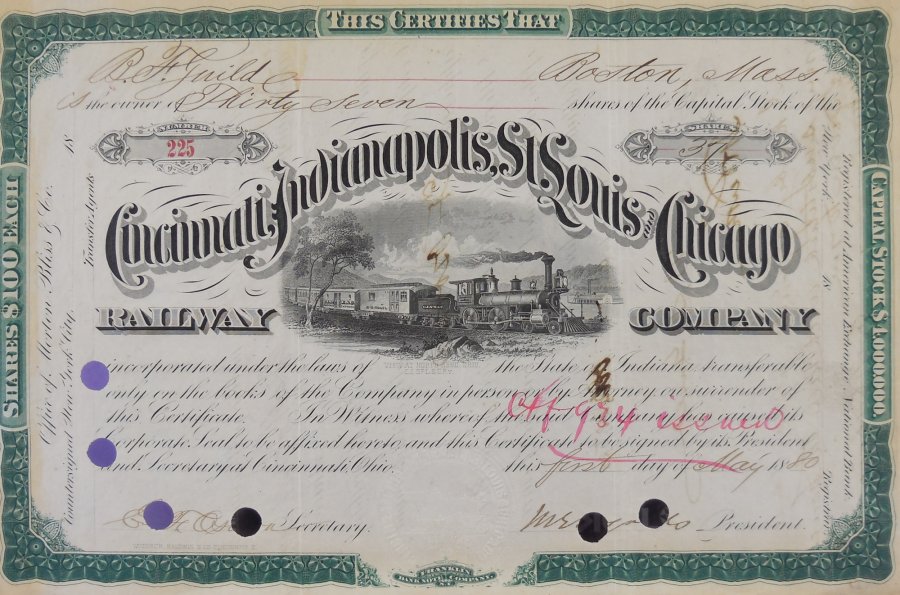 THIS CERTIFIES THAT
B F Guild Boston, Mass.
is the owner of Thirty Seven shares of the Capital Stock of the
NUMBER
225
SHARES
37
Cincinnati, Indianapolis, St. Louis and Chicago
RAILWAY COMPANY
incorporated under the laws of the State of Indiana, transferable
only on the books of the Company in person or by Attorney on surrender of
this Certificate. In Witness whereof the said Company has caused its
Corporate Seal to be affixed hereto, and this Certificate to be signed by its President
and Secretary at Cincinnati, Ohio. this first day of May 1880
Ctf 934 issued
Secretary.
President.
SHARES $100 EACH
CAPITAL STOCK $4,000,000.
Office of Morton Bliss & Co.
Countersigned New York City,
Transfer Agents
18
Registered at American Exchange National Bank
New York 18
Registrar
FRANKLIN
BANK NOTE COMPANY
N.Y.